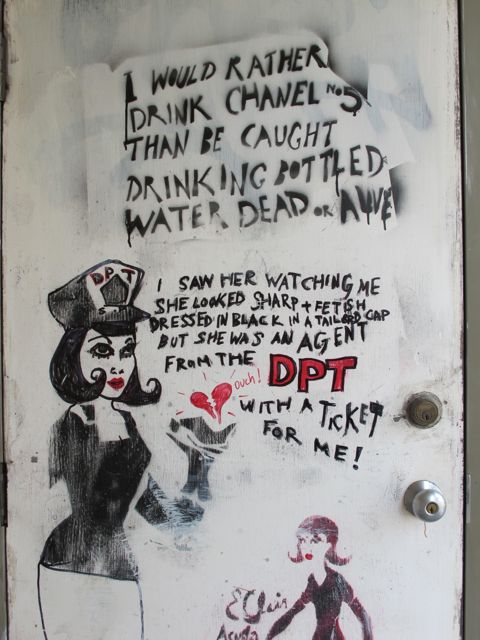 I WOULD RATHER
DRINK CHANEL No5
THAN BE CAUGHT
DRINKING BOTTLED
WATER DEAD OR ALIVE
DPT
I SAW HER WATCHING ME
SHE LOOKED SHARP + FETISH
DRESSED IN BLACK IN A TAILORD CAP
BUT SHE WAS AN AGENT
FROM THE DPT
ouch!
WITH A TICKET
FOR ME!
EClair